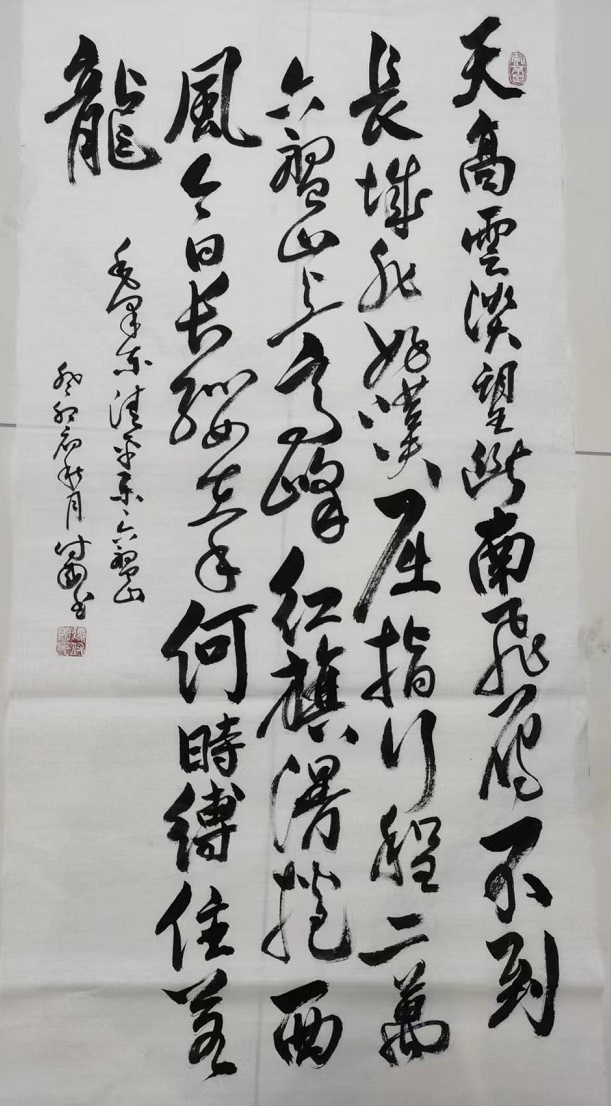 天高雲淡望断南飛雁不到
長城非好漢屈指行程二萬
六盤山上高峰紅旗漫捲西
風今日长纓在手何時縛住苍
龍
毛澤东清平乐六盤山
癸卯初秋月書